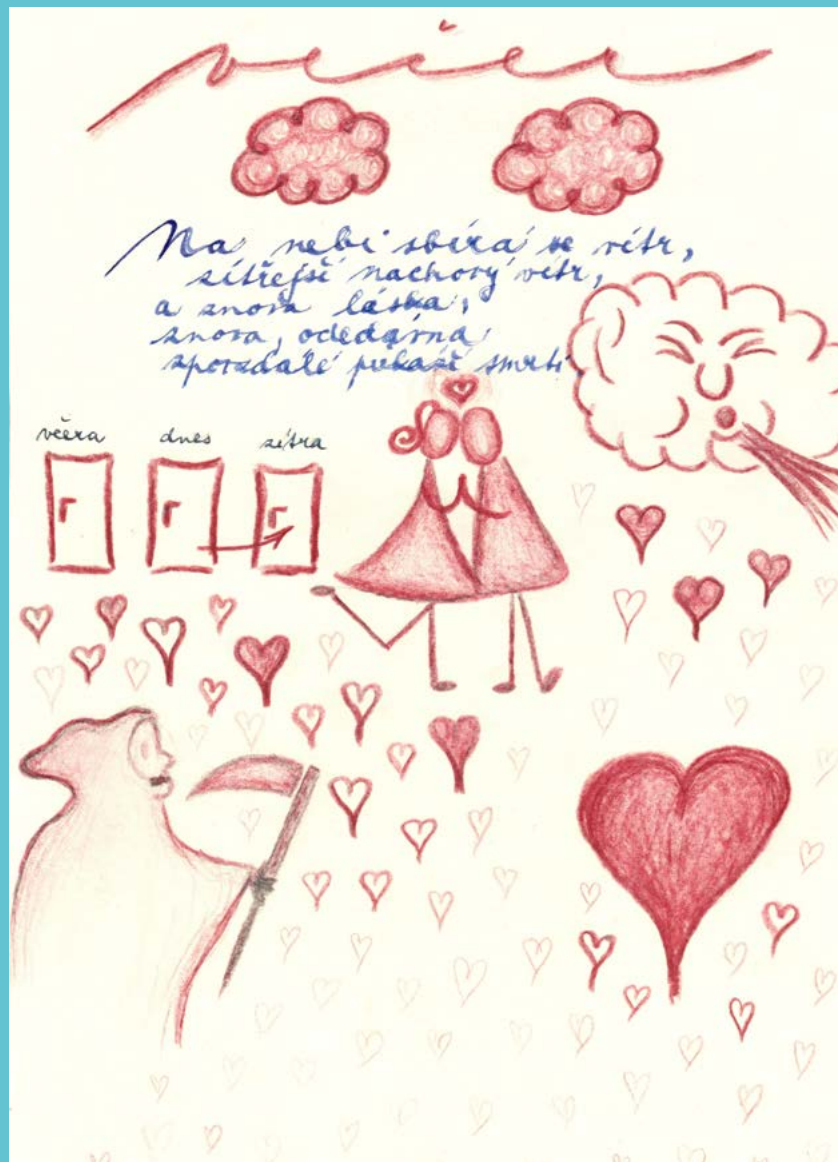 večer
Na nebi sbírá se vítr,
zítřejší nachový vítr,
a znova láska,
znova, odedávna
zpovzdálí pokaží smrti.
včera dnes zítra